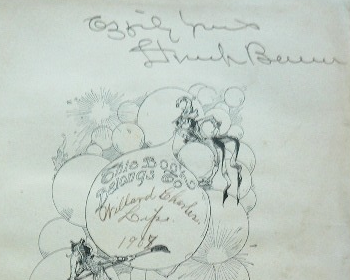 Ozzily yours
L. Frank Baum
This Book
Belongs To
Willard Charles
1908